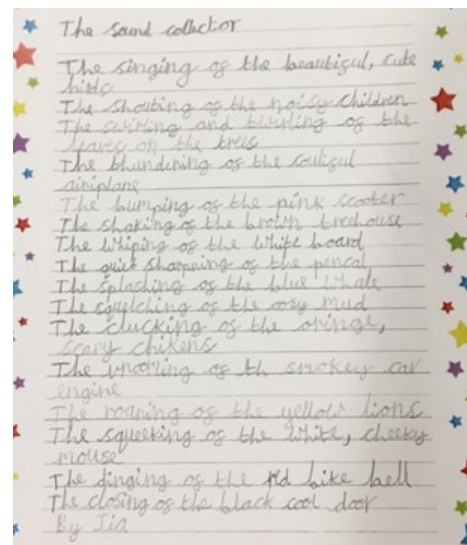 The sound collector
The singing of the beautiful, cute
birds
The shouting of the noisy children
The swirling and twirling of the
leaves on the trees
The thundining of the
airiplane
The bumping of the pink scooter
The shaking of the brown treehouse
The whiping of the white board
The quiet sharpning of the pencal
The splashing of the blue whale
The squelching of the mud
The clucking of the oringe,
scary chikens
The of th smokey car
engine
The roaring of the yellow lions
The squeeking of the white, cheeky
mouse
The dinging of the red bike bell
The closing of the black cool door
By Jia